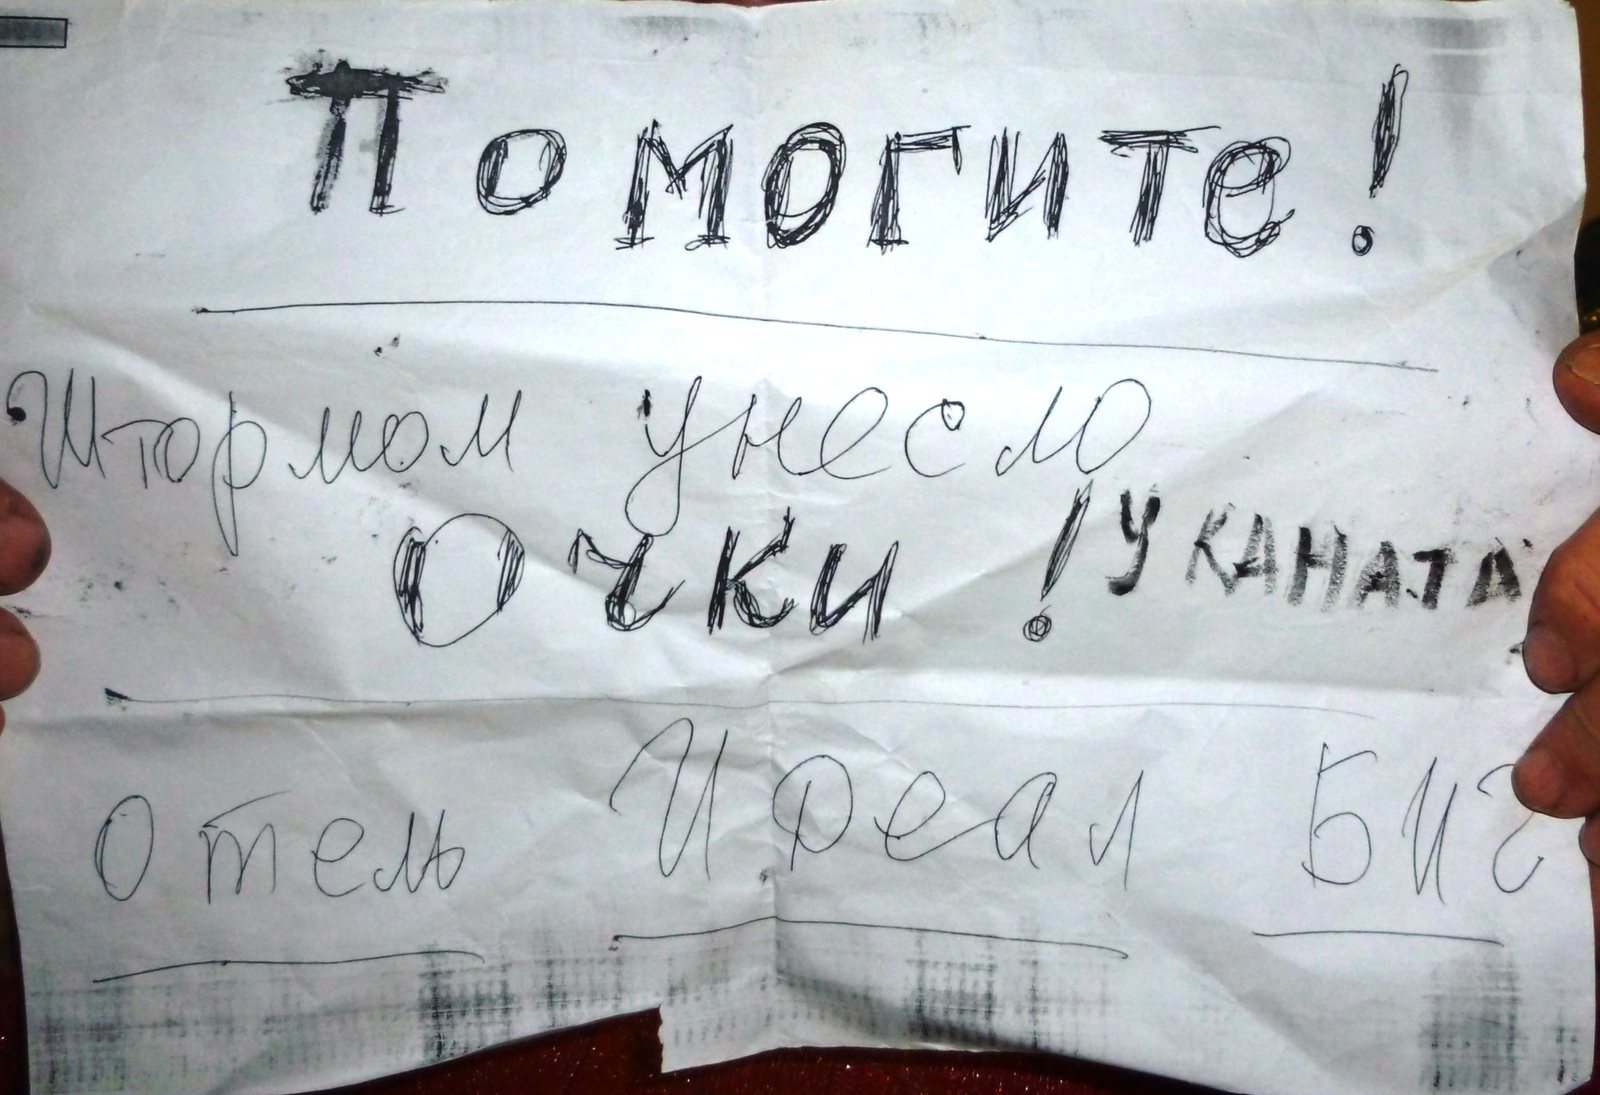 Помогите!
Штормом унесло
Очки! У КАНАТА
Отель Идеал Бич